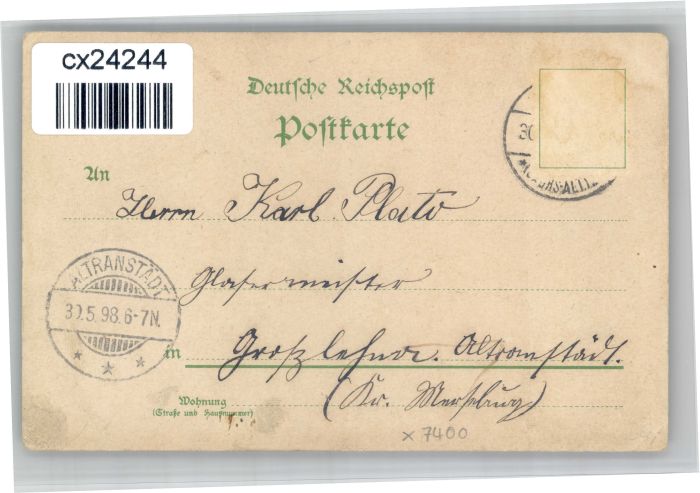 cx24244
Deutsche Reichspost
Postkarte
An
Herrn Karl Plato
Glasermeister
in Großlehna. Altranstädt.
(Kr. Merseburg)
Wohnung
(Straße und Hausnummer)
ALTRANSTÄDT
30.5.98.6-7N.
30
x 7400